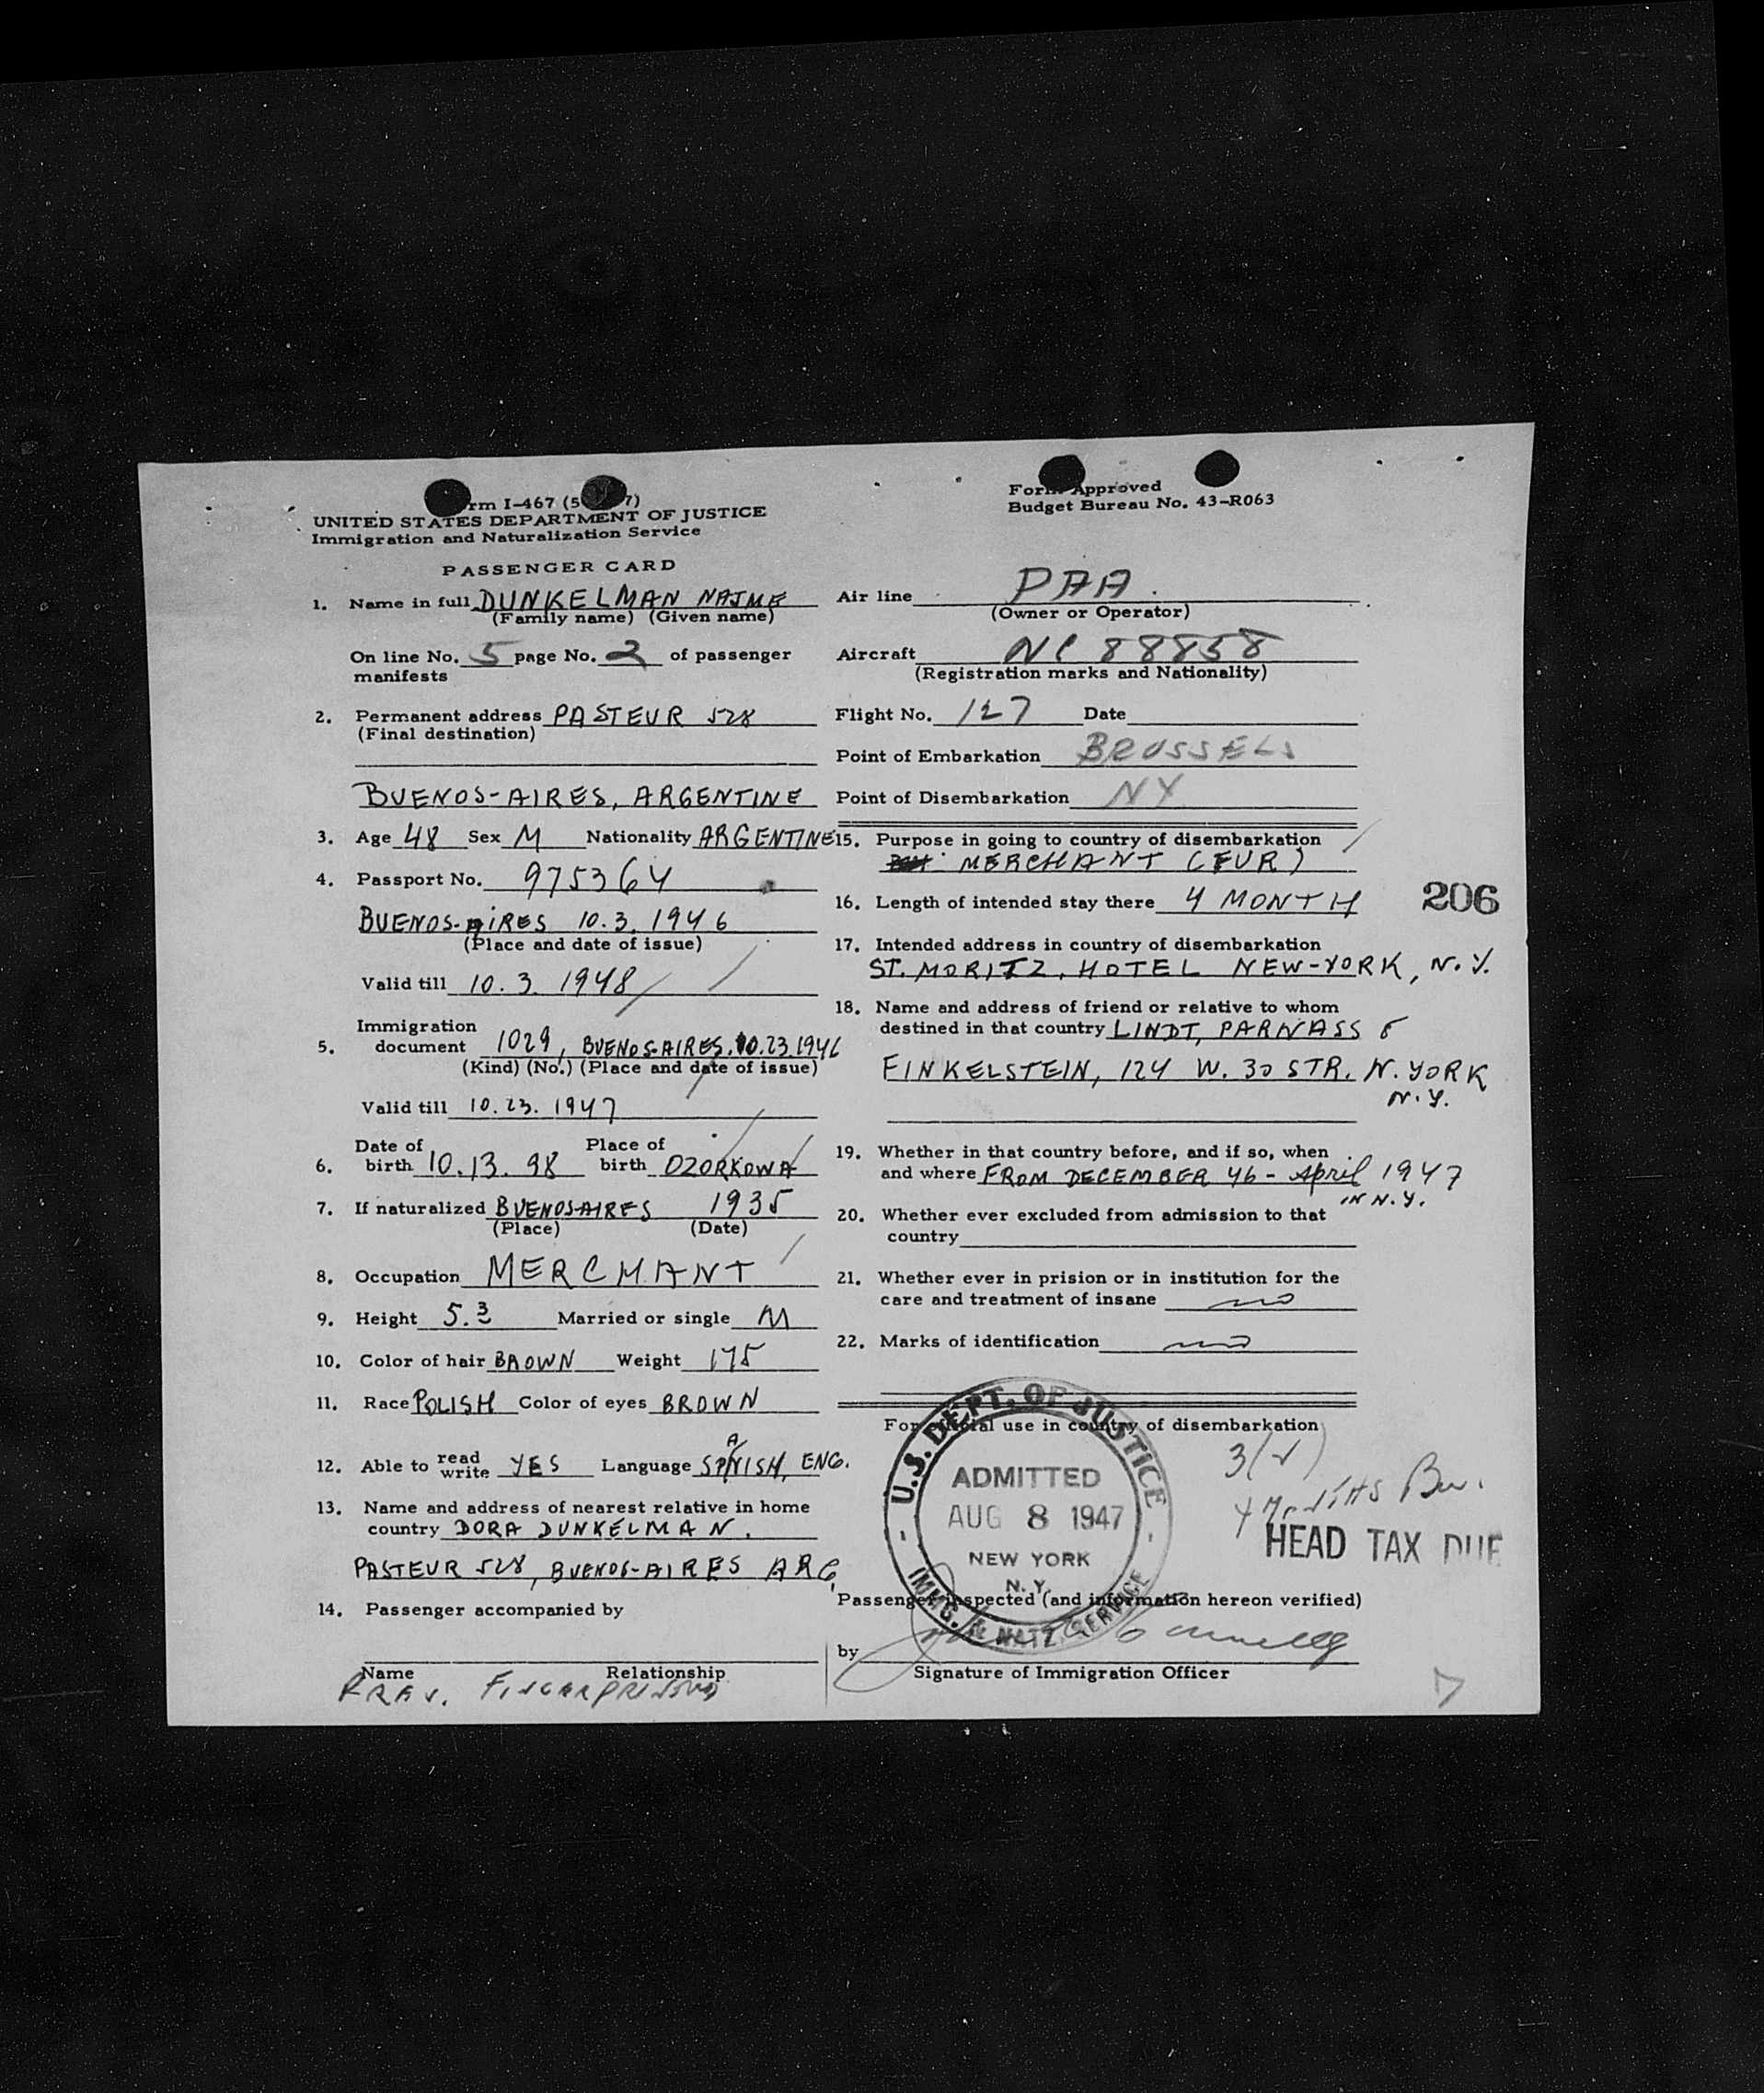 rm I-467 (5 7)
UNITED STATES DEPARTMENT OF JUSTICE
Immigration and Naturalization Service
Form Approved
Budget Bureau No. 43-R063
PASSENGER CARD
1. Name in full DUNKELMAN NAJME
(Family name) (Given name)
On line No. 5 page No. 2 of passenger
manifests
2. Permanent address PASTEUR 528
(Final destination)
BUENOS-AIRES, ARGENTINE
3. Age 48 Sex M Nationality ARGENTINE
4. Passport No. 975364
BUENOS-AIRES 10.3.1946
(Place and date of issue)
Valid till 10.3.1948
5. Immigration
document 1029, BUENOS-AIRES. 10.23.1946
(Kind) (No.) (Place and date of issue)
Valid till 10.23.1947
6. Date of birth 10.13.98 Place of birth OZORKOWA
7. If naturalized BUENOS-AIRES 1935
(Place) (Date)
8. Occupation MERCHANT
9. Height 5.3 Married or single M
10. Color of hair BROWN Weight 175
11. Race POLISH Color of eyes BROWN
12. Able to read write YES Language SPANISH, ENG.
13. Name and address of nearest relative in home
country DORA DUNKELMAN.
PASTEUR 528, BUENOS-AIRES ARG.
14. Passenger accompanied by
Name Relationship
PREV. FINGERPRINTED
Air line PAA.
(Owner or Operator)
Aircraft NC 88858
(Registration marks and Nationality)
Flight No. 127 Date
Point of Embarkation BRUSSELS
Point of Disembarkation NY
15. Purpose in going to country of disembarkation
MERCHANT (FUR)
16. Length of intended stay there 4 MONTH
206
17. Intended address in country of disembarkation
ST. MORITZ. HOTEL NEW-YORK, N.Y.
18. Name and address of friend or relative to whom
destined in that country LINDT, PARNASS &
FINKELSTEIN, 124 W. 30 STR. N. YORK
N.Y.
19. Whether in that country before, and if so, when
and where FROM DECEMBER 46 - April 1947
IN N.Y.
20. Whether ever excluded from admission to that
country
21. Whether ever in prision or in institution for the
care and treatment of insane no
22. Marks of identification no
For official use in country of disembarkation
U.S. DEPT. OF JUSTICE
ADMITTED
AUG 8 1947
NEW YORK
N.Y.
IMMG. & NATZ. SERVICE
4 Months
HEAD TAX DUE
Passenger inspected (and information hereon verified)
by
Signature of Immigration Officer